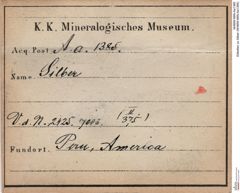 K. K. Mineralogisches Museum.
Acq. Post A. a. 1385.
Name. Silber
V. d. N. 2425. 7086. (II/375)
Fundort. Peru, America